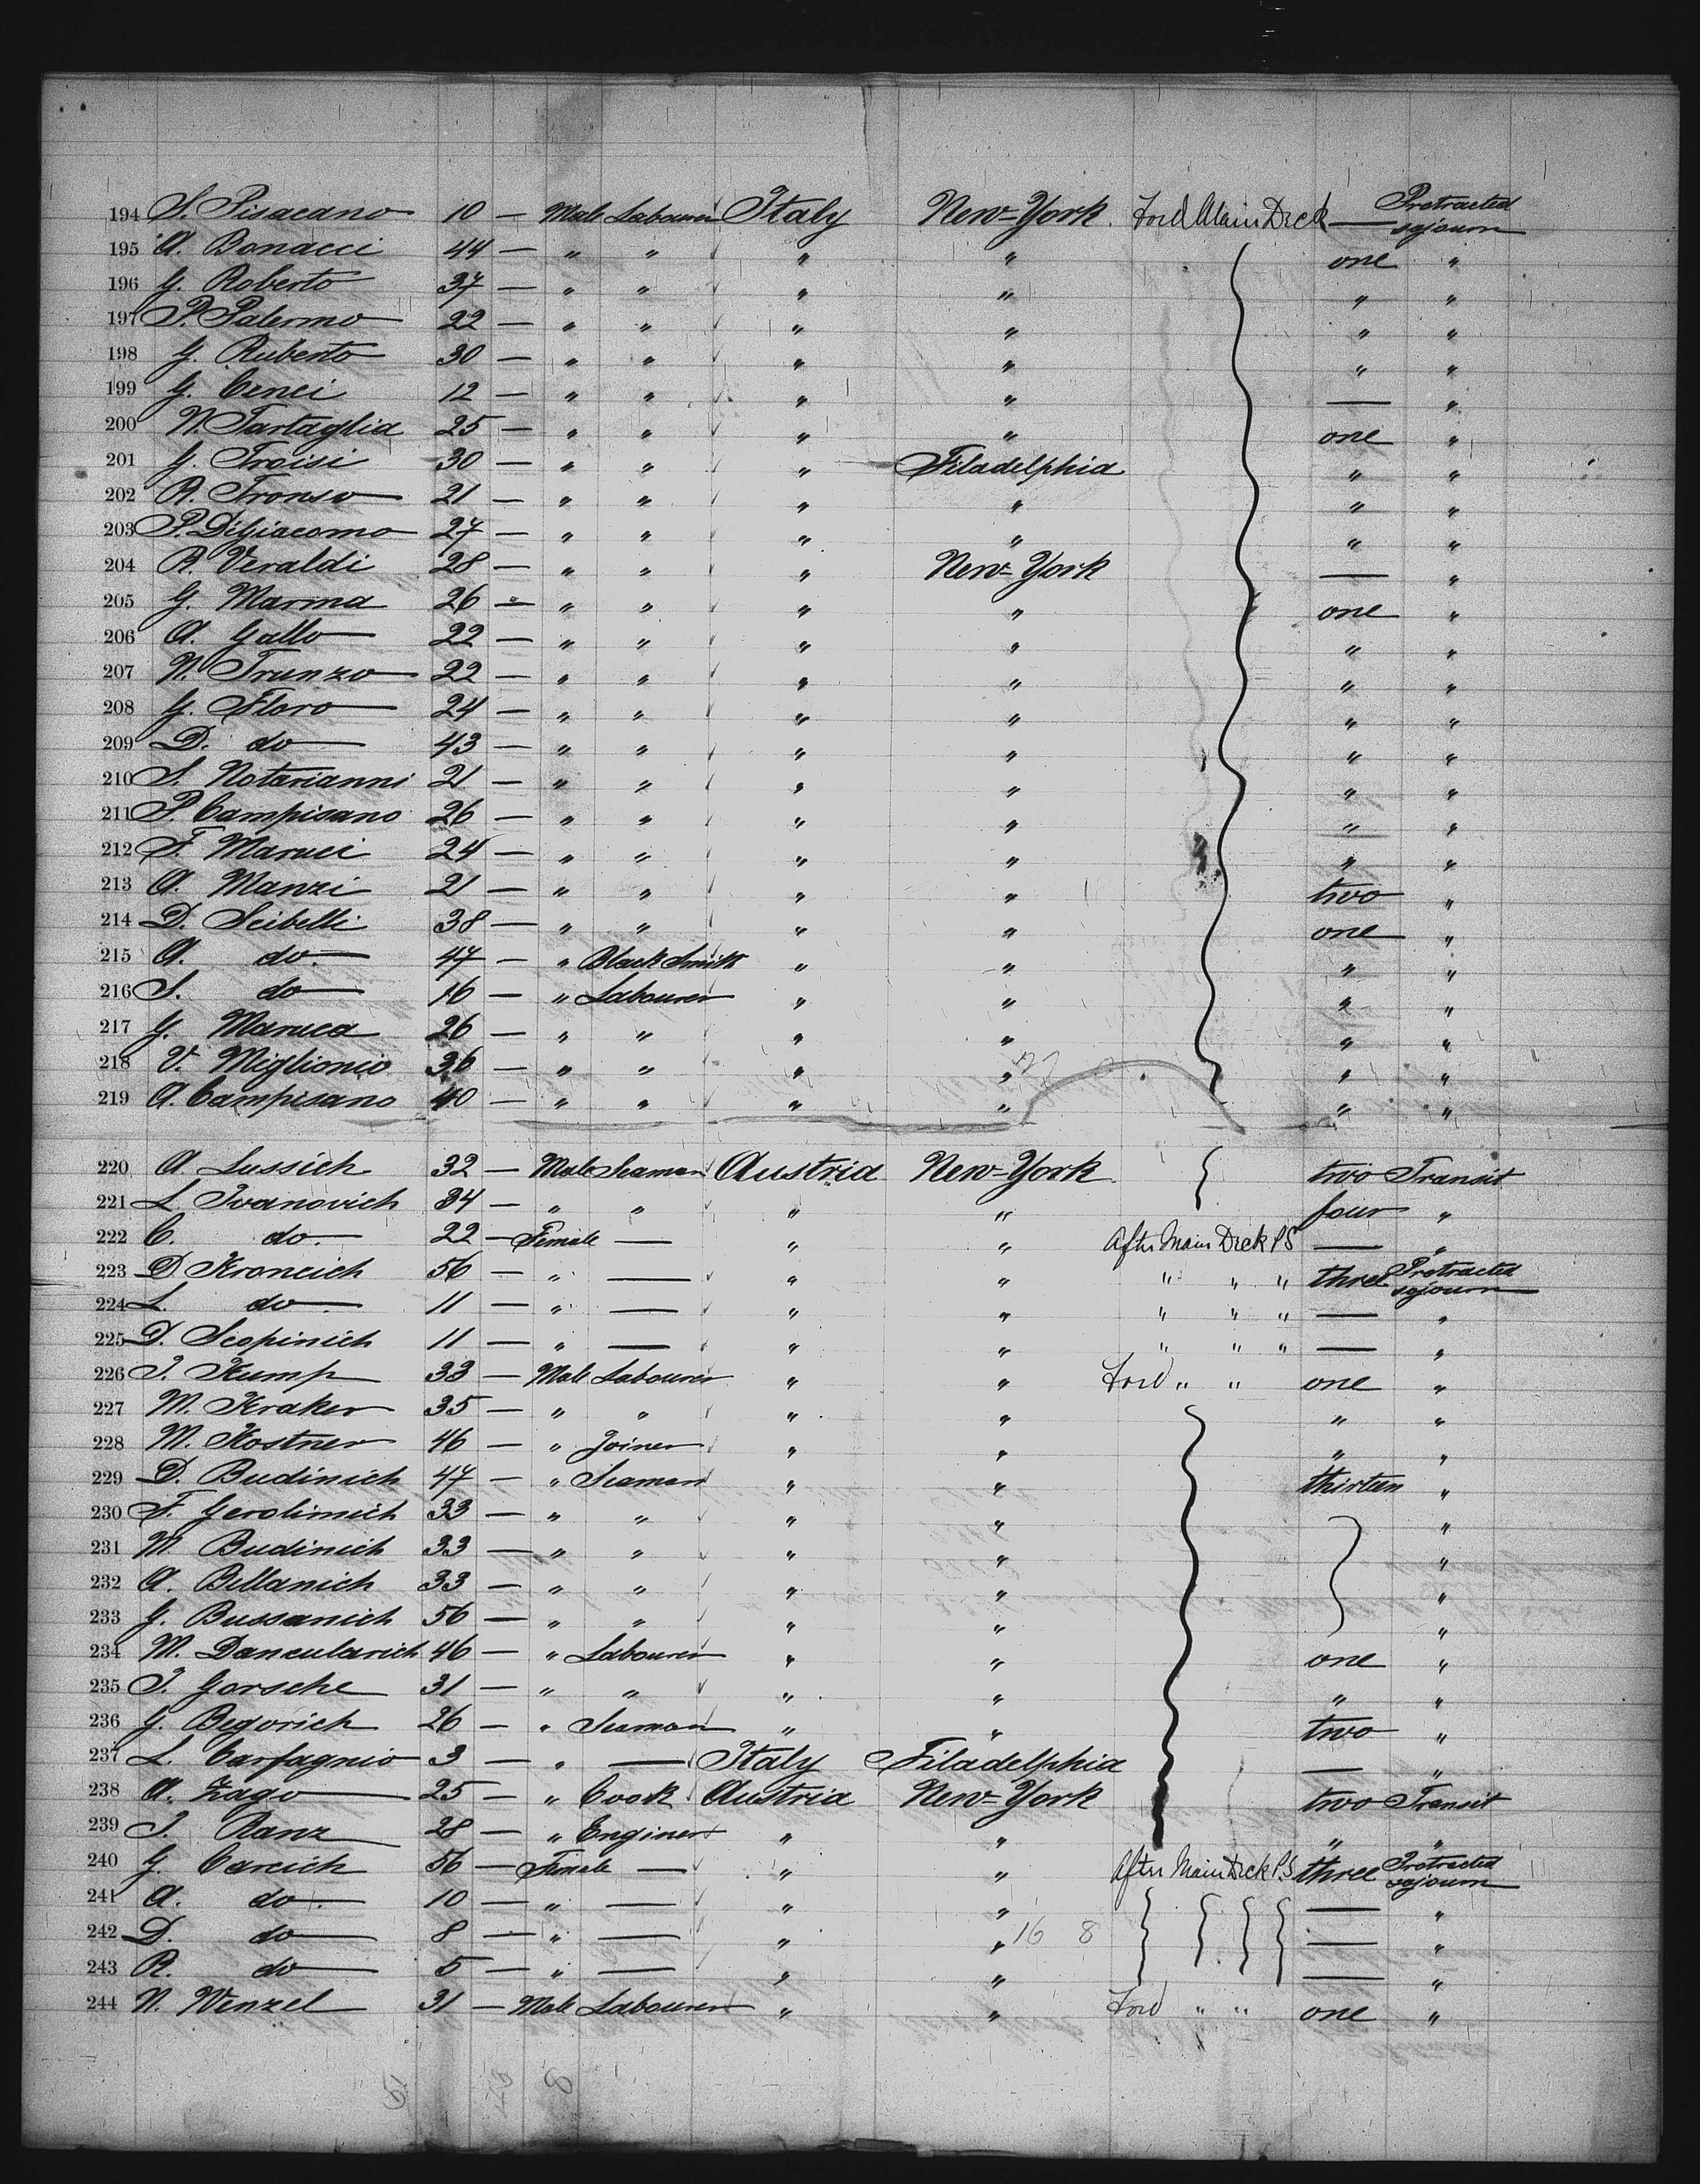 194 S. Pisacano 10 — Male Labourer Italy New=York. Ford Main Deck — Protracted sojourn
195 A. Bonacci 44 — " " " " one "
196 G. Roberto 37 — " " " " " "
197 P. Palermo 22 — " " " " " "
198 G. Ruberto 30 — " " " " " "
199 G. Cenci 12 — " " " " — "
200 N. Tartaglia 25 — " " " " one "
201 G. Troisi 30 — " " " Filadelphia " "
202 R. Tronso 21 — " " " " " "
203 P. DiGiacomo 27 — " " " " " "
204 R. Veraldi 28 — " " " New=York — "
205 G. Marma 26 — " " " " one "
206 A. Gallo 22 — " " " " " "
207 N. Trunzo 22 — " " " " " "
208 G. Floro 24 — " " " " " "
209 D. do 43 — " " " " " "
210 S. Notarianni 21 — " " " " " "
211 P. Campisano 26 — " " " " " "
212 F. Maruci 24 — " " " " " "
213 A. Manzi 21 — " " " " two "
214 D. Scibelli 38 — " " " " one "
215 A. do. 47 — " Black Smith " " " "
216 S. do 16 — " Labourer " " " "
217 G. Maruca 26 — " " " " " "
218 V. Miglionio 36 — " " " " " "
219 A. Campisano 40 — " " " " " "
220 A. Lussich 32 — Male Seaman Austria New=York. two Transit
221 L. Ivanovich 34 — " " " " four "
222 C. do. 22 — Female — " " After Main Deck PS — "
223 D. Kroncich 56 — " — " " " " " three Protracted sojourn
224 L. do. 11 — " — " " " " " — "
225 D. Scopinich 11 — " — " " " " " — "
226 J. Kump 33 — Male Labourer " " Ford " " one "
227 M. Kraker 35 — " " " " " "
228 M. Kostner 46 — " Joiner " " " "
229 D. Budinich 47 — " Seaman " " thirteen "
230 F. Gerolimich 33 — " " " " "
231 M. Budinich 33 — " " " " "
232 A. Billanich 33 — " " " " "
233 G. Bussanich 56 — " " " " "
234 M. Dancularich 46 — " Labourer " " one "
235 J. Gorsche 31 — " " " " " "
236 G. Begovich 26 — " Seaman " " two "
237 L. Carfagnio 3 — " — Italy Filadelphia — "
238 A. Zago 25 — " Cook Austria New=York two Transit
239 J. Ranz 28 — " Enginer " " " "
240 G. Carcich 56 — Female — " " After Main Deck PS three Protracted sojourn
241 A. do. 10 — " — " " — "
242 D. do 8 — " — " " 16 8 — "
243 R. do 5 — " — " " — "
244 N. Wenzel 31 — Male Labourer " " Ford " " one "